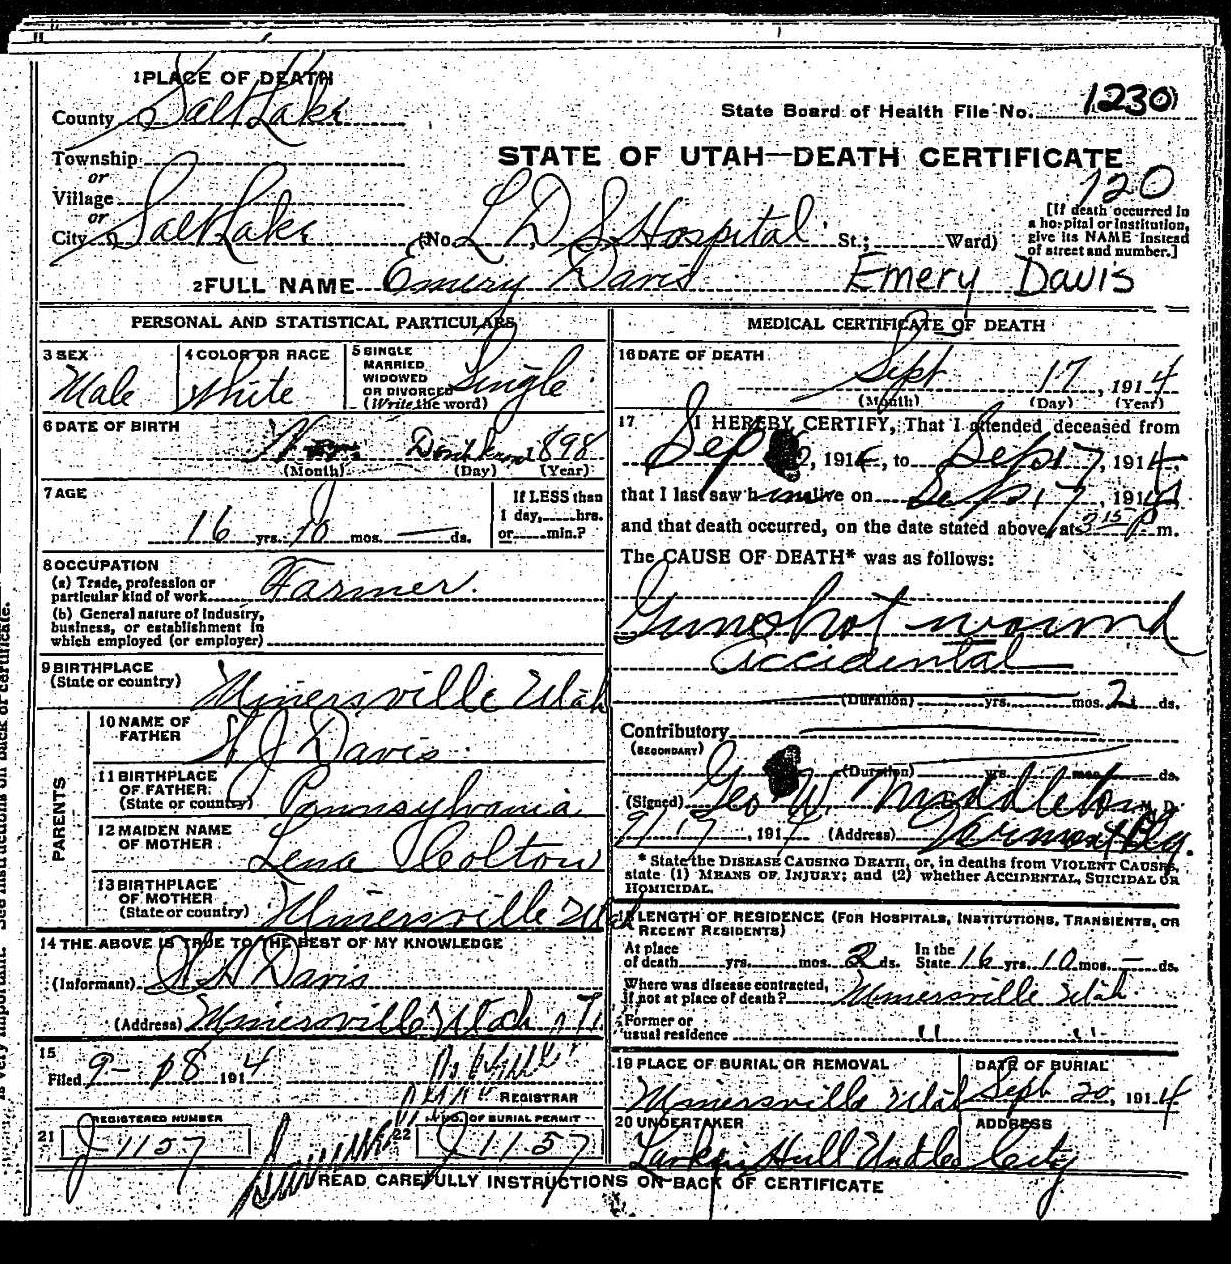 1 PLACE OF DEATH
County Salt Lake
State Board of Health File No. 1230
Township
or
Village
or
City Salt Lake
STATE OF UTAH—DEATH CERTIFICATE
120
(No. L D S Hospital St.; Ward)
[If death occurred in
a hospital or institution,
give its NAME instead
of street and number.]
2 FULL NAME Emery Davis Emery Davis
PERSONAL AND STATISTICAL PARTICULARS
3 SEX
Male
4 COLOR OR RACE
White
5 SINGLE
MARRIED
WIDOWED
OR DIVORCED
(Write the word)
Single
6 DATE OF BIRTH
Dont know 1898
(Month) (Day) (Year)
7 AGE
16 yrs. 10 mos. — ds.
If LESS than
1 day, hrs.
or min.?
8 OCCUPATION
(a) Trade, profession or
particular kind of work Farmer.
(b) General nature of industry,
business, or establishment in
which employed (or employer)
9 BIRTHPLACE
(State or country)
Minersville Utah
PARENTS
10 NAME OF
FATHER
J Davis
11 BIRTHPLACE
OF FATHER
(State or country)
Pennsylvania
12 MAIDEN NAME
OF MOTHER
Lena Colton
13 BIRTHPLACE
OF MOTHER
(State or country)
Minersville Utah
14 THE ABOVE IS TRUE TO THE BEST OF MY KNOWLEDGE
(Informant) Davis
(Address) Minersville Utah
15
Filed 9-18 1914
REGISTRAR
REGISTERED NUMBER
21 J 1157
NO. OF BURIAL PERMIT
22 J 1157
MEDICAL CERTIFICATE OF DEATH
16 DATE OF DEATH
Sept 17, 1914
(Month) (Day) (Year)
17 I HEREBY CERTIFY, That I attended deceased from
Sep , 1914, to Sep 17, 1914,
that I last saw him alive on Sep 17, 1914
and that death occurred, on the date stated above, at 3 15 P m.
The CAUSE OF DEATH* was as follows:
Gunshot wound
accidental
(Duration) yrs. mos. 2 ds.
Contributory
(SECONDARY)
(Duration) yrs. mos. ds.
(Signed) Geo W. Middleton, M. D.
9/17, 1914 (Address) Vermont Bldg.
* State the DISEASE CAUSING DEATH, or, in deaths from VIOLENT CAUSES,
state (1) MEANS OF INJURY; and (2) whether ACCIDENTAL, SUICIDAL OR
HOMICIDAL.
18 LENGTH OF RESIDENCE (FOR HOSPITALS, INSTITUTIONS, TRANSIENTS, OR
RECENT RESIDENTS)
At place
of death yrs. mos. 2 ds.
In the
State 16 yrs. 10 mos. — ds.
Where was disease contracted,
if not at place of death? Minersville Utah
Former or
usual residence " "
19 PLACE OF BURIAL OR REMOVAL
Minersville Utah
DATE OF BURIAL
Sept 20, 1914
20 UNDERTAKER
Larkin Hull Undtkg
ADDRESS
City
READ CAREFULLY INSTRUCTIONS ON BACK OF CERTIFICATE